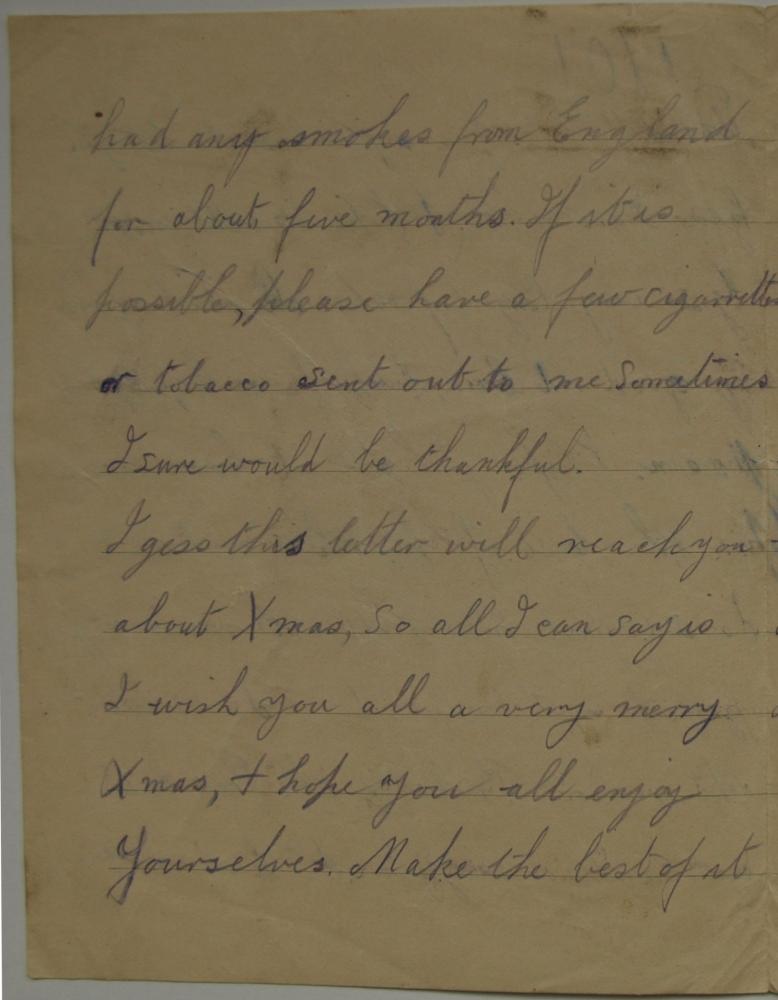 had any smokes from England
for about five months. If it is
possible, please have a few cigarrettes
or tobacco sent out to me Sometimes
I sure would be thankful.
I gess this letter will reach you
about Xmas, So all I can say is
I wish you all a very merry
Xmas, + hope you all enjoy
Yourselves. Make the best of it